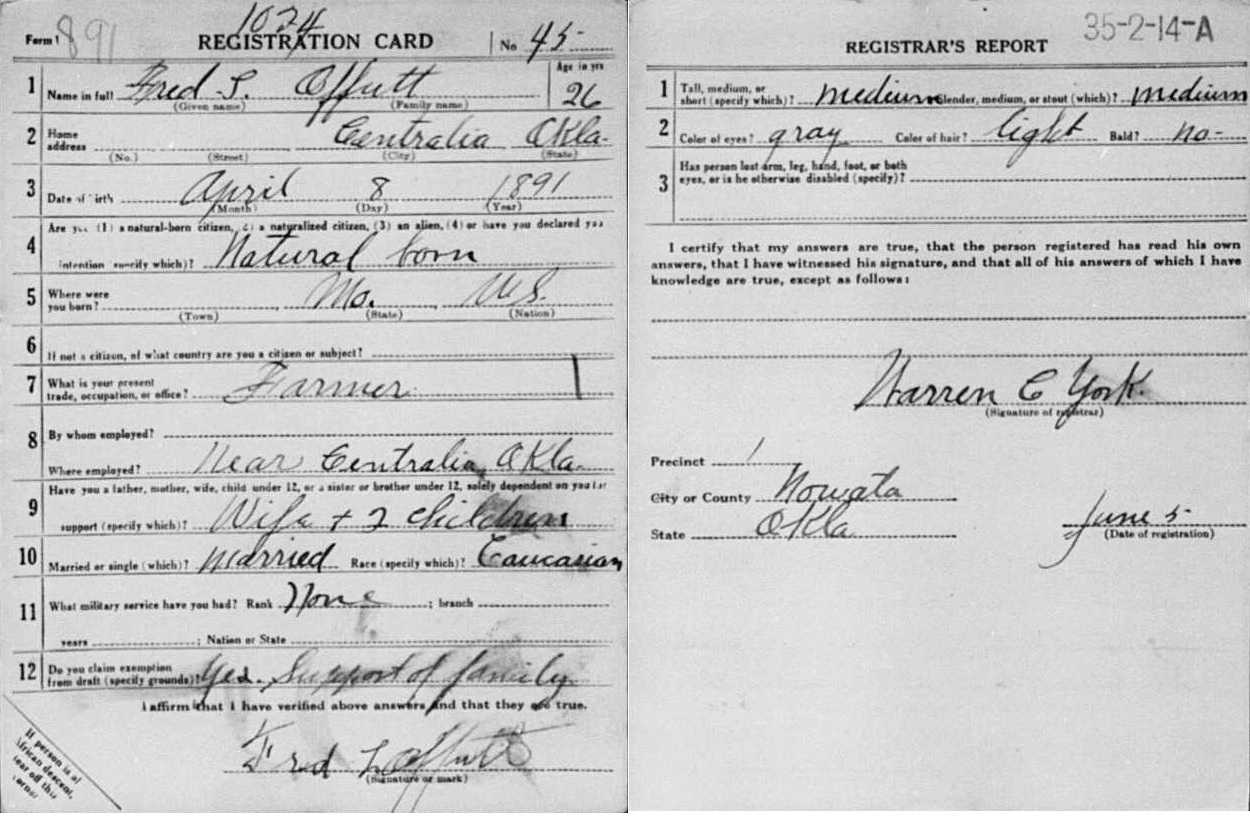 1024
Form 1 891 REGISTRATION CARD No 45
1 Name in full Fred S. Offutt Age in yrs 26
(Given name) (Family name)
2 Home address Centralia Okla.
(No.) (Street) (City) (State)
3 Date of birth April 8 1891
(Month) (Day) (Year)
4 Are you (1) a natural-born citizen, (2) a naturalized citizen, (3) an alien, (4) or have you declared your
intention (specify which)? Natural born
5 Where were you born? Mo. U.S.
(Town) (State) (Nation)
6 If not a citizen, of what country are you a citizen or subject?
7 What is your present trade, occupation, or office? Farmer
8 By whom employed?
Where employed? Near Centralia, Okla.
9 Have you a father, mother, wife, child under 12, or a sister or brother under 12, solely dependent on you for
support (specify which)? Wife + 2 children
10 Married or single (which)? Married Race (specify which)? Caucasian
11 What military service have you had? Rank None ; branch
years ; Nation or State
12 Do you claim exemption from draft (specify grounds)? Yes. Support of family.
I affirm that I have verified above answers and that they are true.
Fred Offutt
(Signature or mark)
If person is of
African descent,
tear off this
corner
35-2-14-A
REGISTRAR'S REPORT
1 Tall, medium, or short (specify which)? medium Slender, medium, or stout (which)? medium
2 Color of eyes? gray Color of hair? light Bald? no-
3 Has person lost arm, leg, hand, foot, or both
eyes, or is he otherwise disabled (specify)?
I certify that my answers are true, that the person registered has read his own
answers, that I have witnessed his signature, and that all of his answers of which I have
knowledge are true, except as follows:
Warren C York.
(Signature of registrar)
Precinct 1
City or County Nowata
State Okla
June 5
(Date of registration)